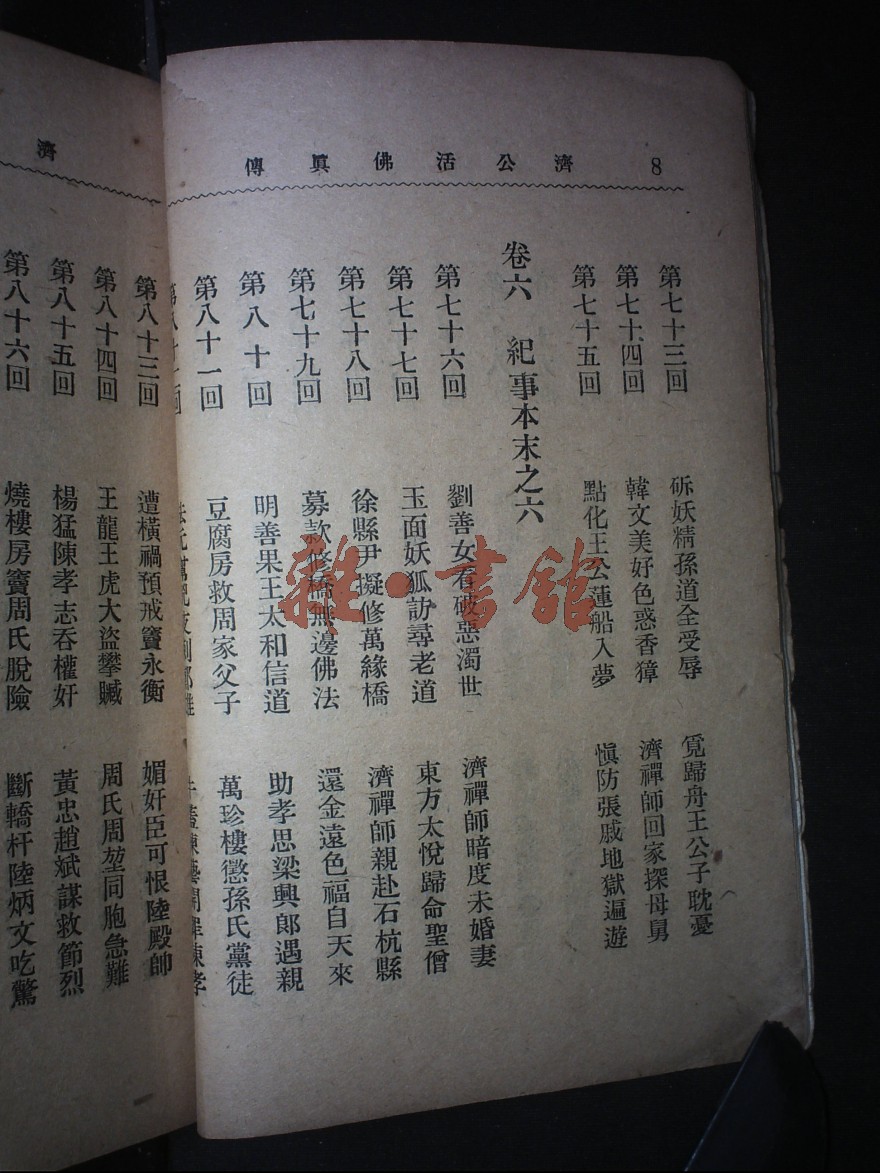 濟公活佛眞傳 8
第七十三回 斫妖精孫道全受辱 覓歸舟王公子耽憂
第七十四回 韓文美好色惑香獐 濟禪師回家探母舅
第七十五回 點化王公蓮船入夢 愼防張戚地獄遍遊
卷六 紀事本末之六
第七十六回 劉善女看破惡濁世 濟禪師暗度未婚妻
第七十七回 玉面妖狐訪尋老道 東方太悅歸命聖僧
第七十八回 徐縣尹擬修萬緣橋 濟禪師親赴石杭縣
第七十九回 募款修橋無邊佛法 還金遠色福自天來
第八十回 明善果王太和信道 助孝思梁興郞遇親
第八十一回 豆腐房救周家父子 萬珍樓懲孫氏黨徒
濟
第八十三回 遭橫禍預戒竇永衡 媚奸臣可恨陸殿帥
第八十四回 王龍王虎大盜攀贓 周氏周堃同胞急難
第八十五回 楊猛陳孝志吞權奸 黃忠趙斌謀救節烈
第八十六回 燒樓房竇周氏脫險 斷轎杆陸炳文吃驚
雜·書館